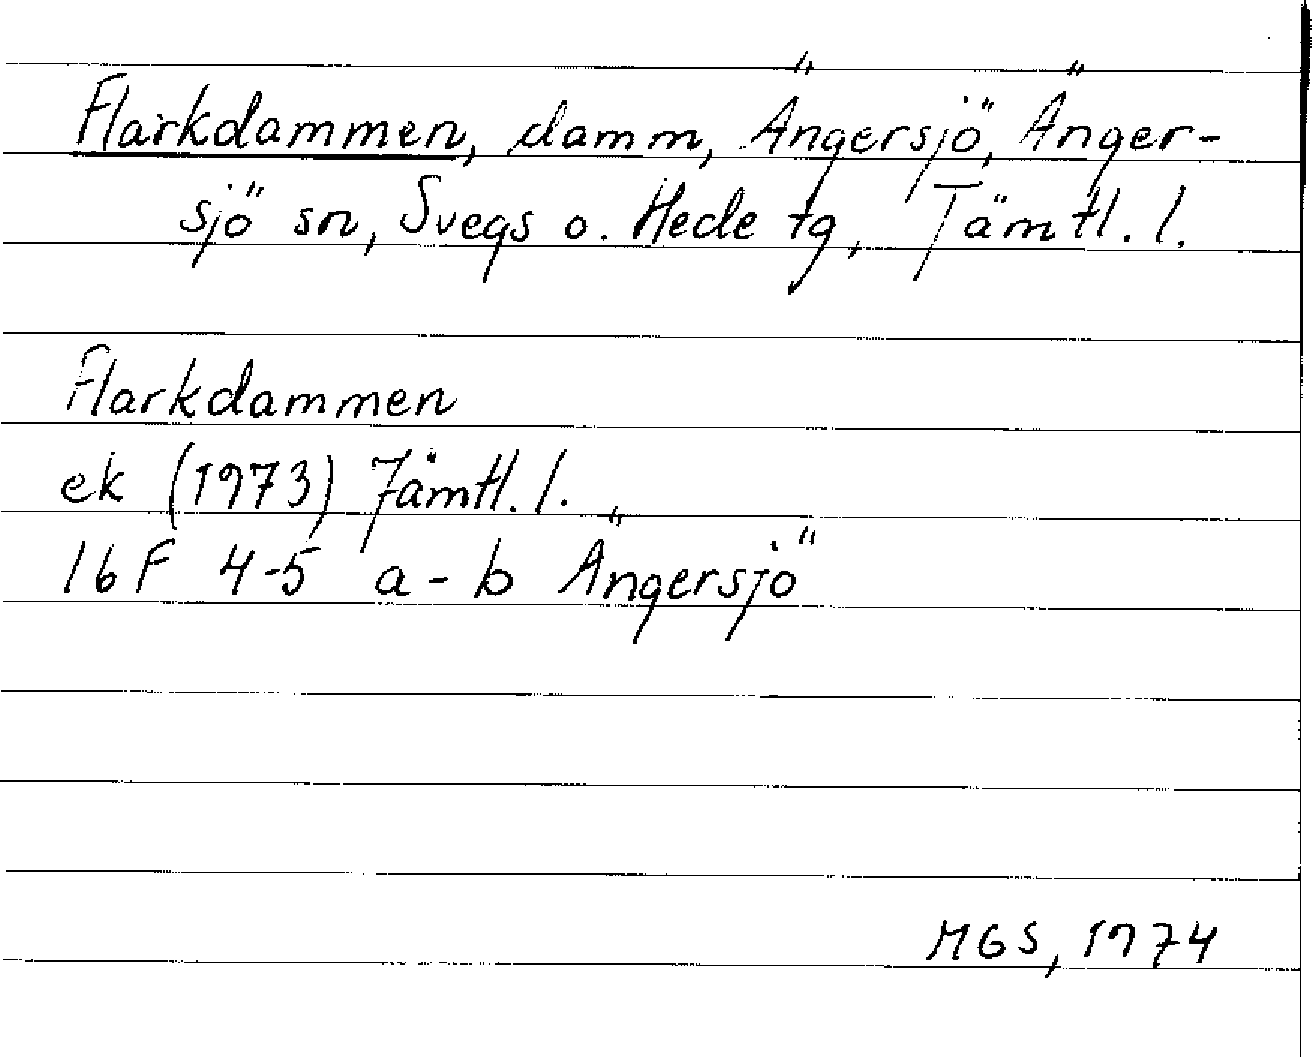 Flarkdammen, damm, Ängersjö, Änger-
sjö sn, Svegs o. Hede tg, Jämtl. l.
Flarkdammen
ek (1973) Jämtl. l.
16F 4-5 a-b Ängersjö
MGS, 1974